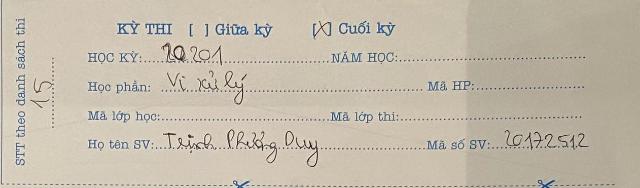 STT theo danh sách thi 15
KỲ THI [ ] Giữa kỳ [X] Cuối kỳ
HỌC KỲ: 20201 NĂM HỌC:
Học phần: Vi xử lý Mã HP:
Mã lớp học: Mã lớp thi:
Họ tên SV: Trịnh Phương Duy Mã số SV: 20172512